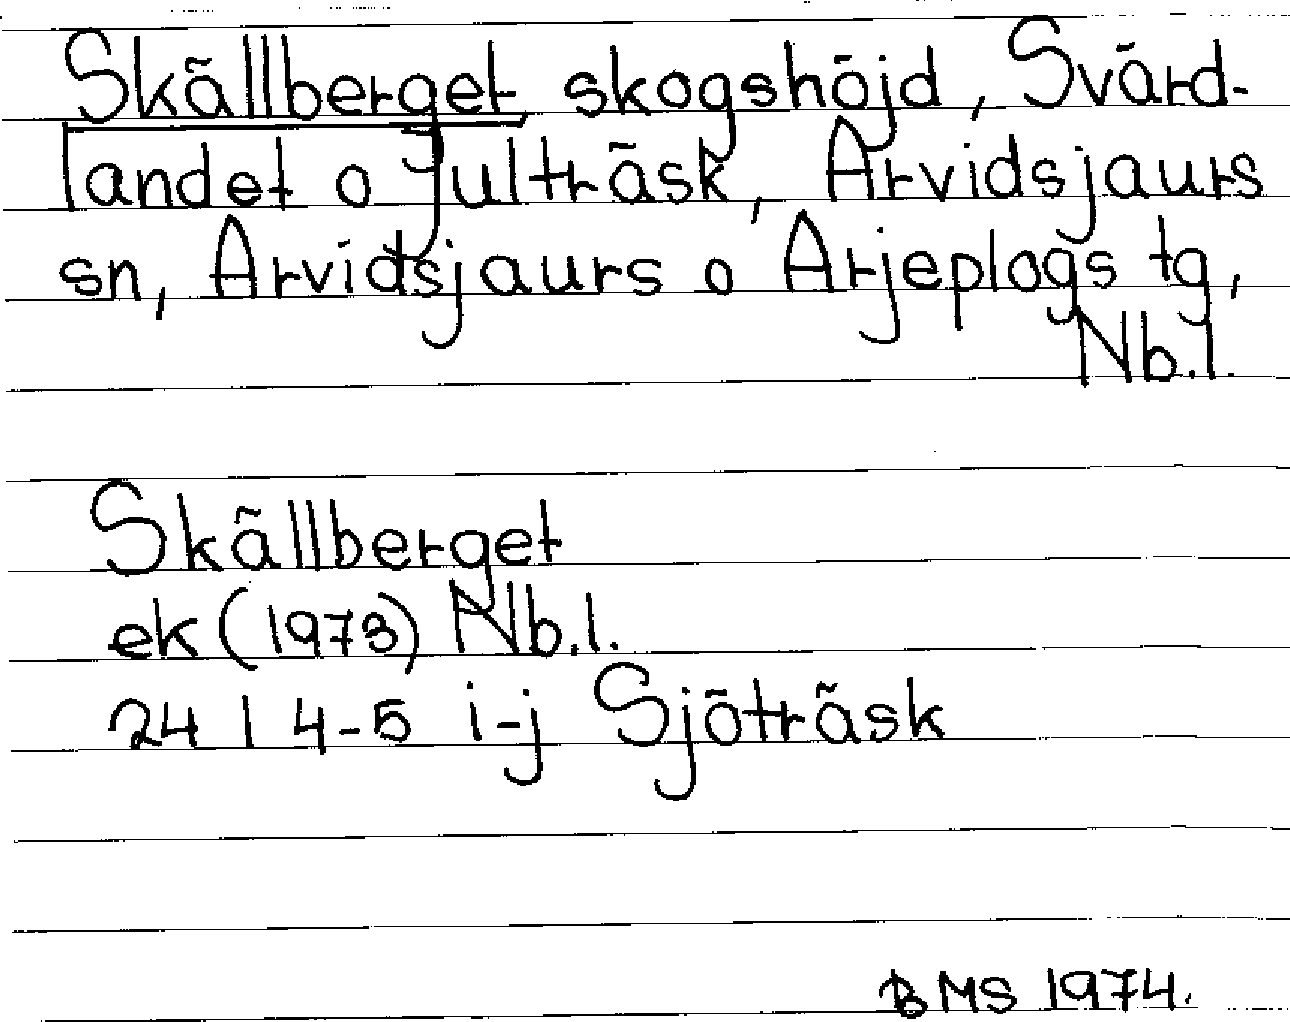 Skällberget skogshöjd, Svärd-
landet o Julträsk, Arvidsjaurs
sn, Arvidsjaurs o Arjeplogs tg,
Nb.l.
Skällberget
ek (1973) Nb.l.
24 I 4-5 i-j Sjöträsk
BMS 1974.